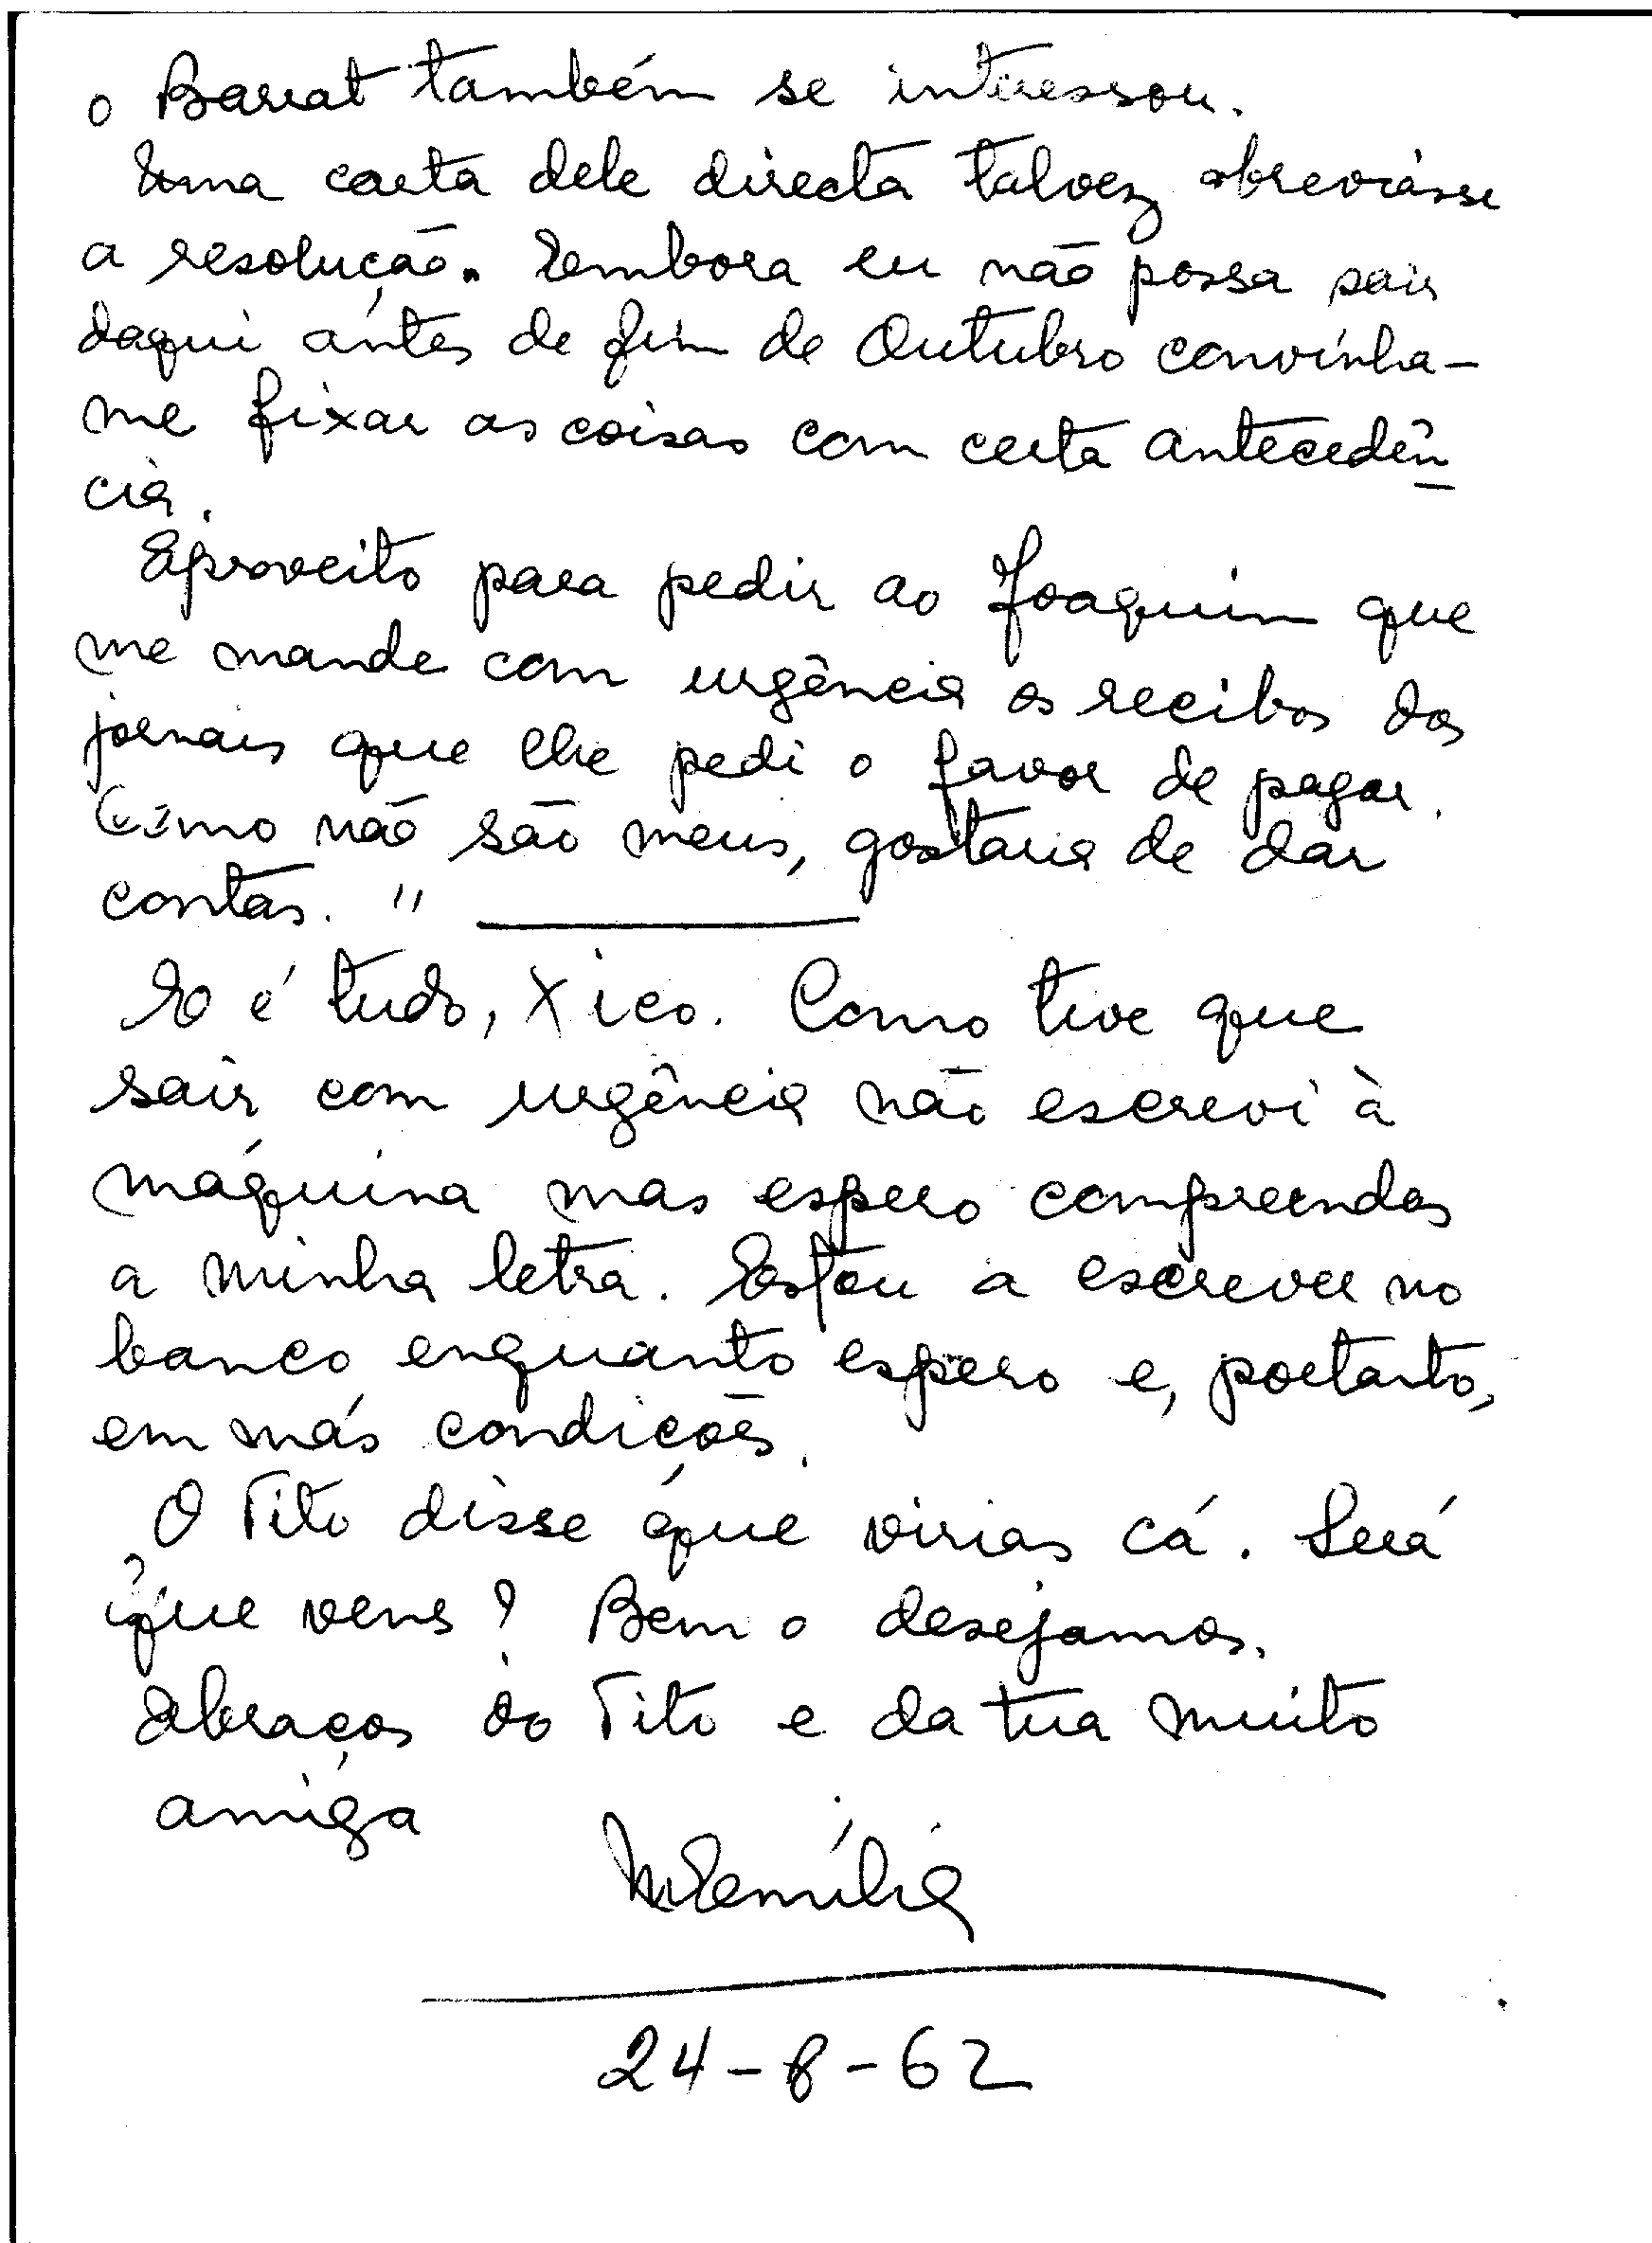 o Barrat também se interessou.
Uma carta dele directa talvez abreviásse
a resolução. Embora eu não possa sair
daqui antes de fim de Outubro convinha-
me fixar as coisas com certa antecedên
cia.
Aproveito para pedir ao Joaquim que
me mande com urgência os recibos dos
jornais que lhe pedi o favor de pagar.
Como não são meus, gostaria de dar
contas. "
E é tudo, Xico. Como tive que
sair com urgência não escrevi à
máquina mas espero compreendas
a minha letra. Estou a escrever no
banco enquanto espero e, portanto,
em más condições.
O Tito disse que virias cá. Será
que vens? Bem o desejamos.
Abraços do Tito e da tua muito
amiga
M Emília
24-8-62